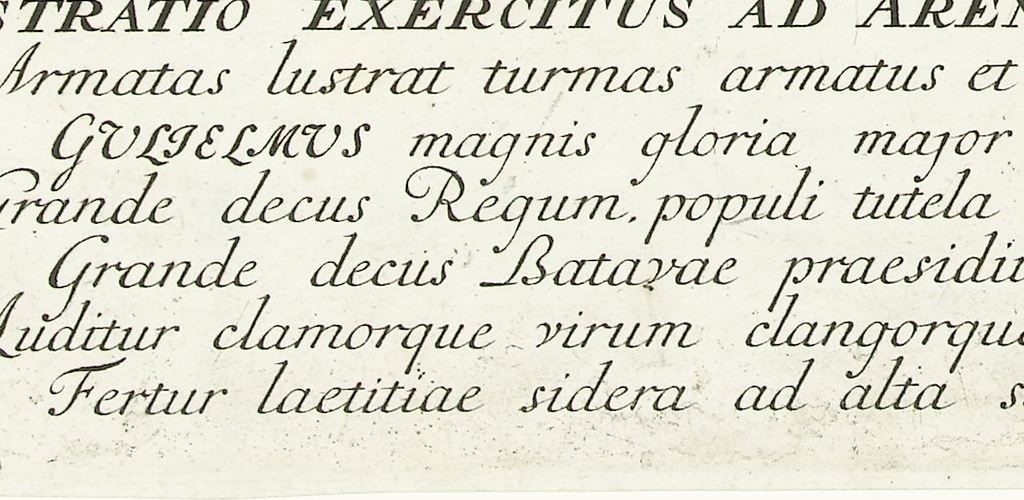 STRATIO EXERCITUS AD AREN
Armatas lustrat turmas armatus et
GULIELMUS magnis gloria major
Grande decus Regum, populi tutela
Grande decus Batavae praesidiu
Auditur clamorque virum clangorque
Fertur laetitiae sidera ad alta s